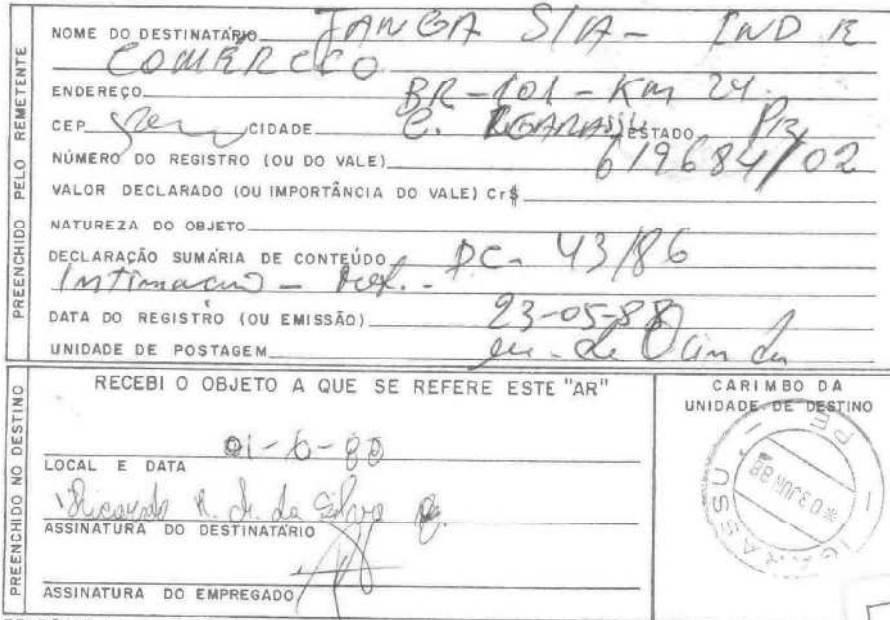 PREENCHIDO PELO REMETENTE
NOME DO DESTINATÁRIO TANGA S/A - IND E
COMÉRCIO
ENDEREÇO BR-101 - Km 24.
CEP CIDADE ESTADO
NÚMERO DO REGISTRO (OU DO VALE) 619684/02
VALOR DECLARADO (OU IMPORTÂNCIA DO VALE) Cr$
NATUREZA DO OBJETO
DECLARAÇÃO SUMÁRIA DE CONTEÚDO DC- 43/86
Intimação -
DATA DO REGISTRO (OU EMISSÃO) 23-05-88
UNIDADE DE POSTAGEM
PREENCHIDO NO DESTINO
RECEBI O OBJETO A QUE SE REFERE ESTE "AR"
LOCAL E DATA 01-6-88
Ricardo R. da Silva
ASSINATURA DO DESTINATÁRIO
ASSINATURA DO EMPREGADO
CARIMBO DA
UNIDADE DE DESTINO
IGARASSU - PE
03 JUN 88